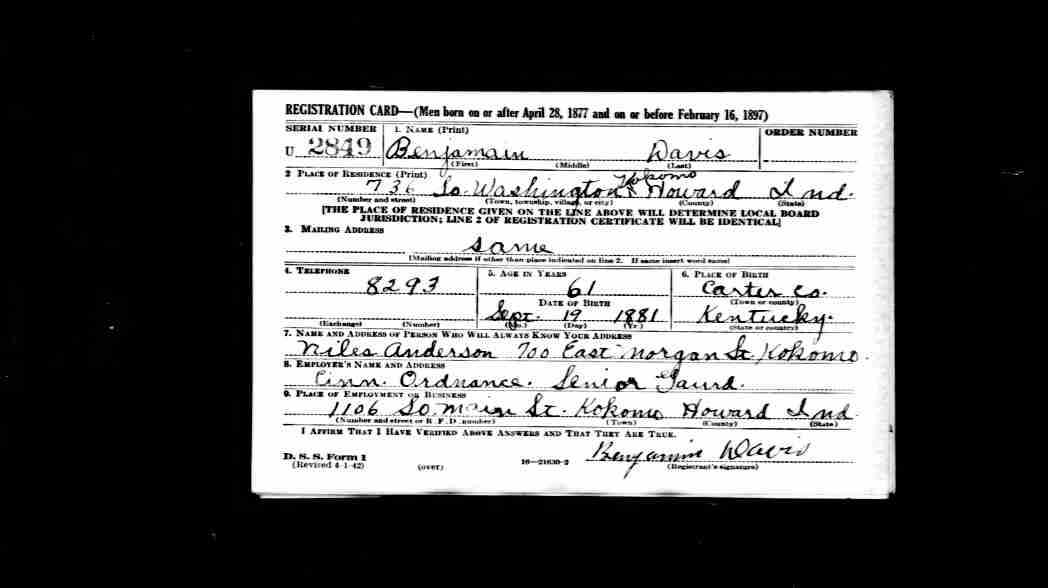 REGISTRATION CARD—(Men born on or after April 28, 1877 and on or before February 16, 1897)
SERIAL NUMBER 1. NAME (Print) ORDER NUMBER
U 2849 Benjamain Davis
(First) (Middle) (Last)
2 PLACE OF RESIDENCE (Print)
736 So. Washington Kokomo Howard Ind.
(Number and street) (Town, township, village, or city) (County) (State)
[THE PLACE OF RESIDENCE GIVEN ON THE LINE ABOVE WILL DETERMINE LOCAL BOARD
JURISDICTION; LINE 2 OF REGISTRATION CERTIFICATE WILL BE IDENTICAL]
3. MAILING ADDRESS
same
[Mailing address if other than place indicated on line 2. If same insert word same]
4. TELEPHONE 5. AGE IN YEARS 6. PLACE OF BIRTH
8293 61 Carter Co.
DATE OF BIRTH (Town or county)
Sept. 19 1881 Kentucky.
(Exchange) (Number) (Mo.) (Day) (Yr.) (State or country)
7. NAME AND ADDRESS OF PERSON WHO WILL ALWAYS KNOW YOUR ADDRESS
Niles Anderson 700 East Morgan St. Kokomo.
8. EMPLOYER'S NAME AND ADDRESS
Cinn. Ordnance. Senior Gaurd.
9. PLACE OF EMPLOYMENT OR BUSINESS
1106 So. Main St. Kokomo Howard Ind
(Number and street or R. F. D. number) (Town) (County) (State)
I AFFIRM THAT I HAVE VERIFIED ABOVE ANSWERS AND THAT THEY ARE TRUE.
D. S. S. Form 1 Benjamin Davis
(Revised 4-1-42) (over) 16—21630-2 (Registrant's signature)